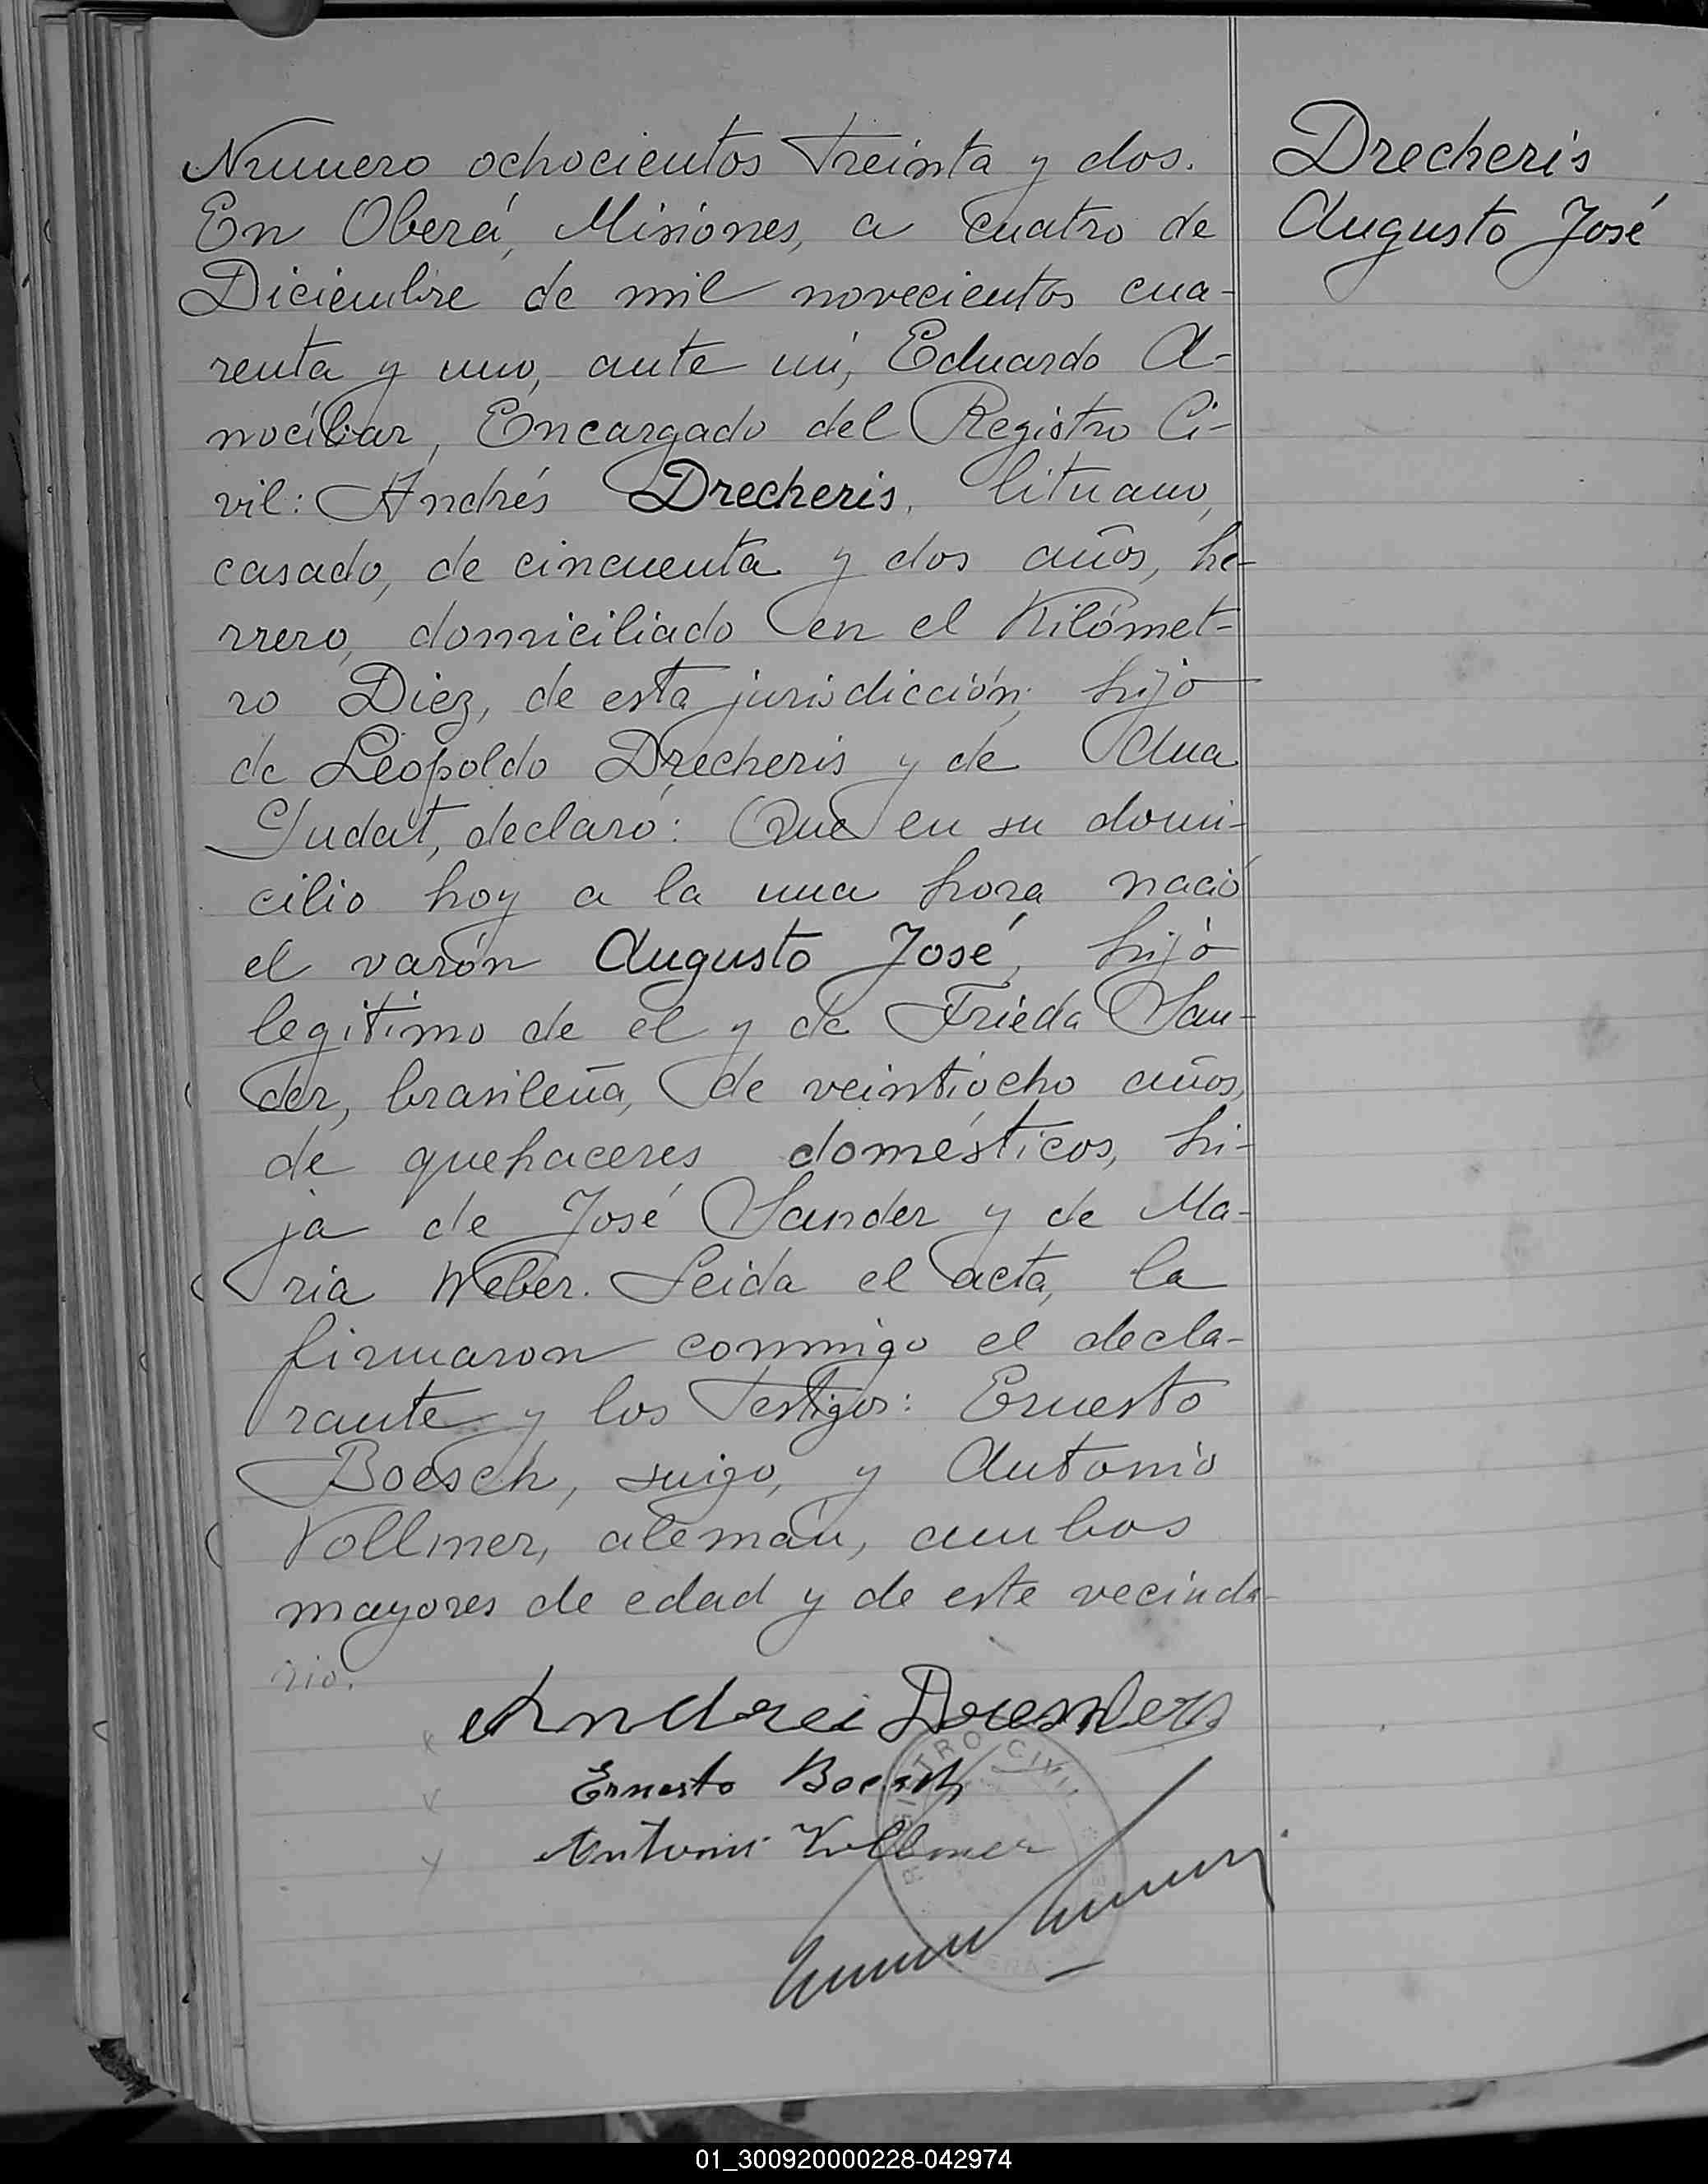 Numero ochocientos treinta y dos.
En Oberá, Misiones, a cuatro de
Diciembre de mil novecientos cua-
renta y uno, ante mí, Eduardo A-
nocíbar, Encargado del Registro Ci-
vil: Andrés Drecheris, lituano,
casado, de cincuenta y dos años, he-
rrero, domiciliado en el Kilómet-
ro Diez, de esta jurisdicción, hijo
de Leopoldo Drecheris y de Ana
Yudat, declaró: Que en su domi-
cilio hoy a la una hora nació
el varón Augusto José, hijo
legítimo de el y de Frieda San-
der, brasileña, de veintiocho años,
de quehaceres domésticos, hi-
ja de José Sander y de Ma-
ria Weber. Leida el acta, la
firmaron conmigo el decla-
rante y los testigos: Ernesto
Boesch, suizo, y Antonio
Vollmer, alemán, ambos
mayores de edad y de este vecinda-
rio.
Drecheris
Augusto José
Andrei
Ernesto Boesch
Antonio Vollmer
REGISTRO CIVIL
01_300920000228-042974